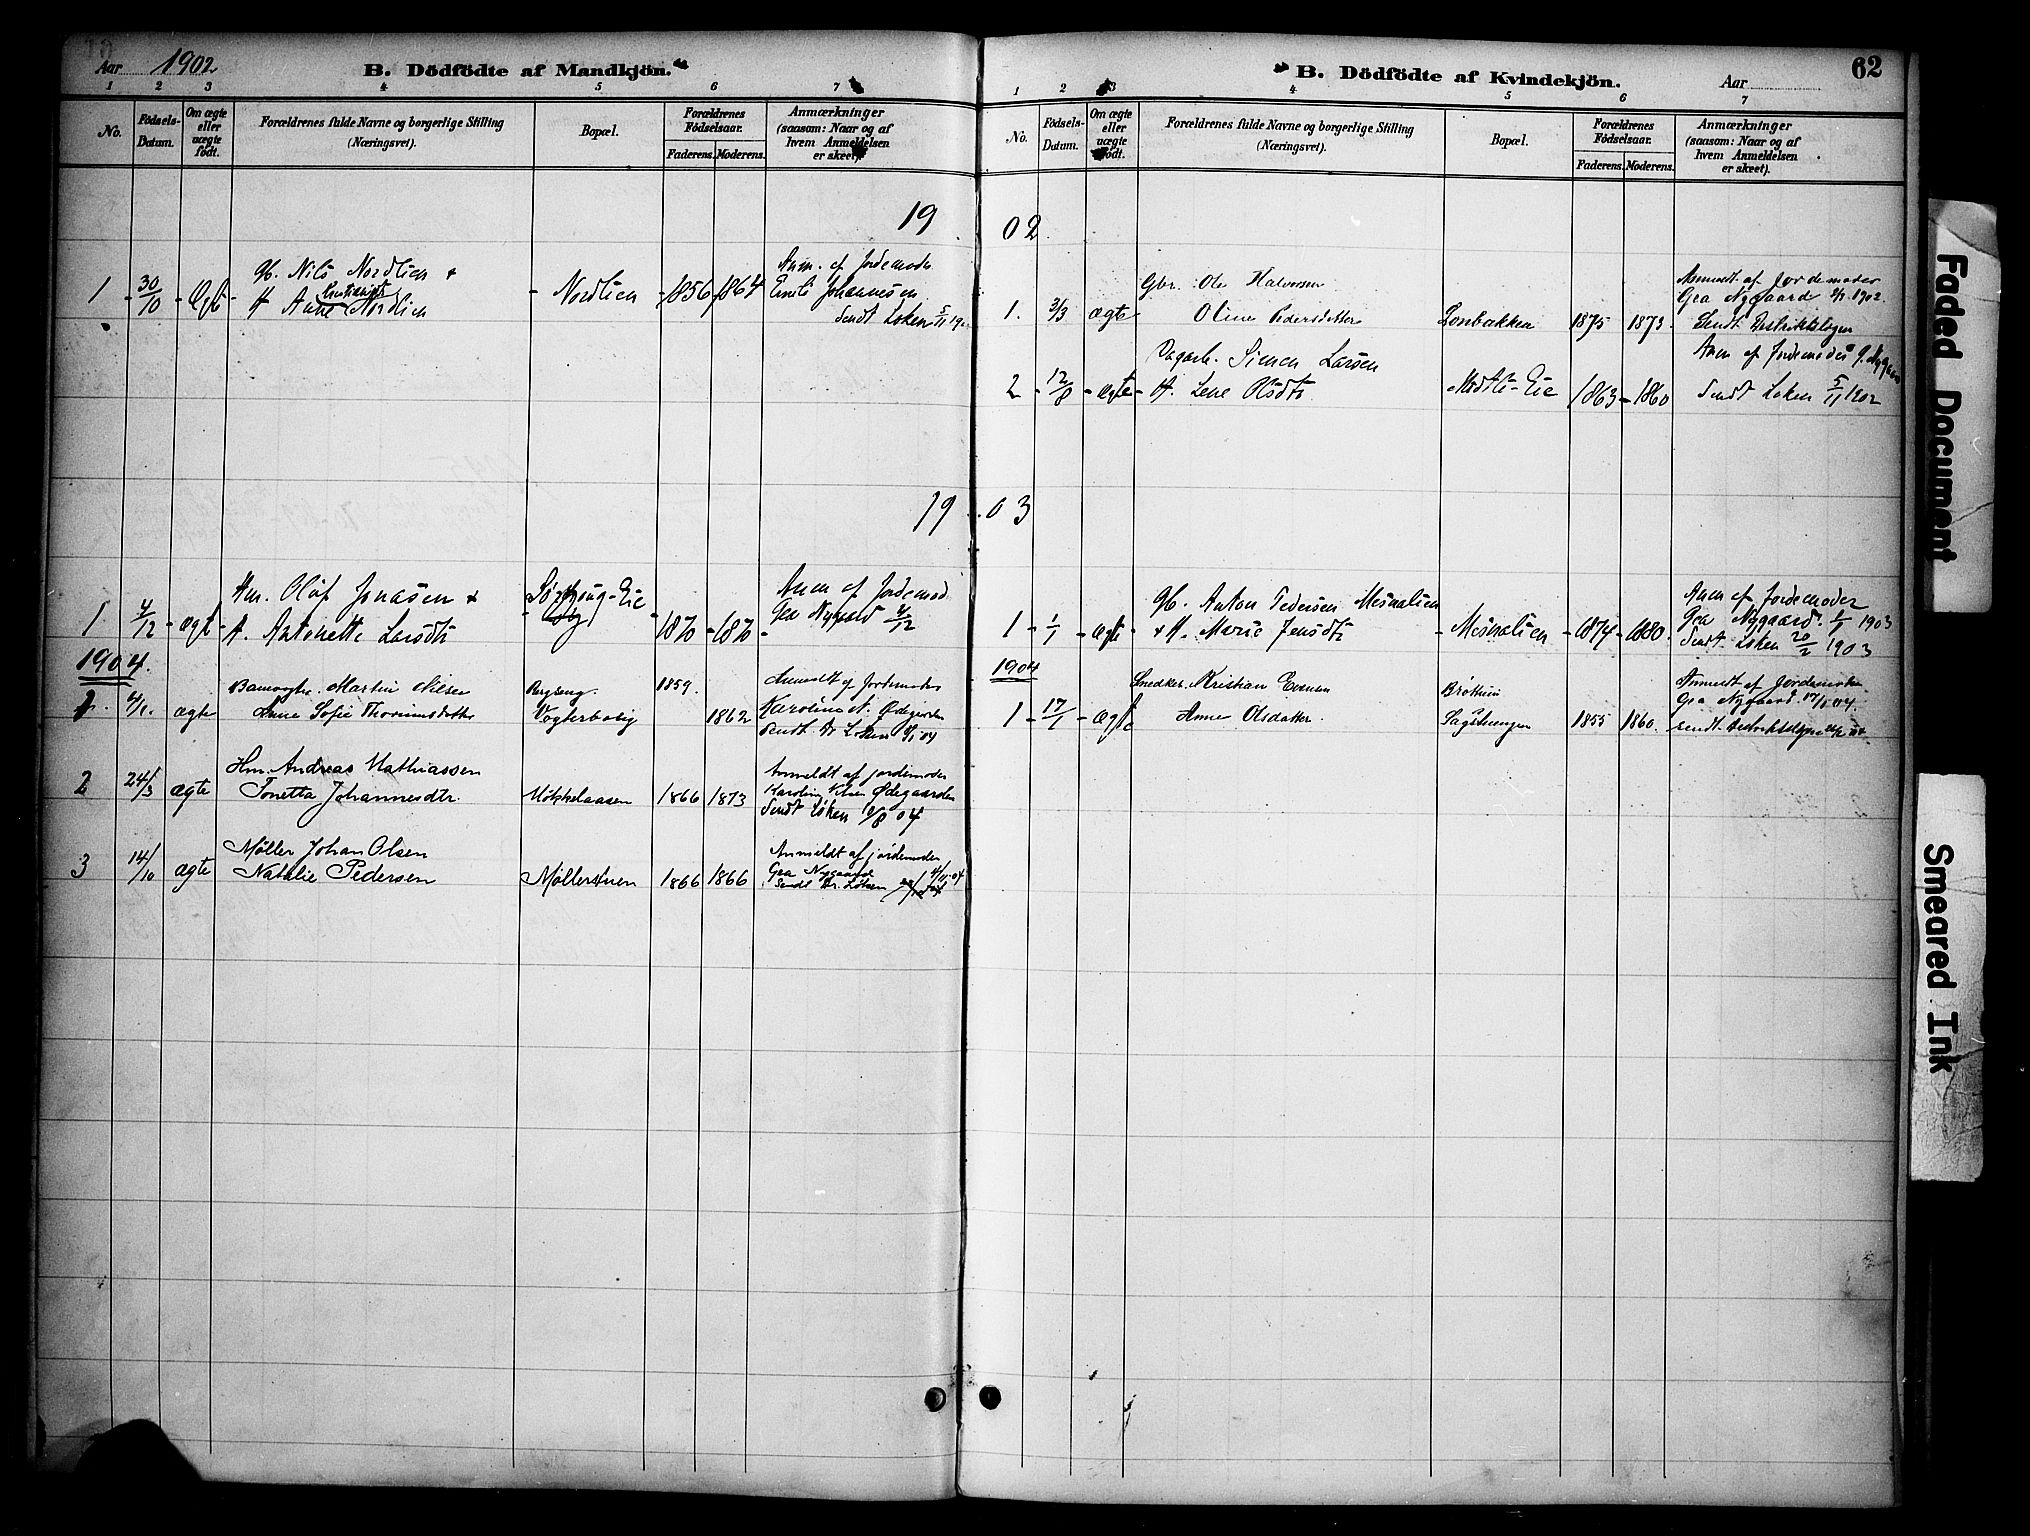 Aar 1902
B. Dödfödte af Mandkjön.
1 2 3 4 5 6 7
No.
Födsels-Datum.
Om ægte eller uægte födt.
Forældrenes fulde Navne og borgerlige Stilling (Næringsvei).
Bopæl.
Forældrenes Födselsaar.
Faderens. Moderens.
Anmærkninger (saasom: Naar og af hvem Anmeldelsen er skeet).
19
Gb. Nils Nordlien &
1 - 30/10 - Ægt - H. Anne Nordlien - Nordlien - 1856 - 1864
Anm. af Jordemoder
Johannesen
Sendt Løken 5/11 19
19
Hm. Olaf Jonasen &
1. 4/12 - ægt - H. Antonette Larsdtr - 1870 - 1870 -
Anm af Jordemod.
Gea Nygaard 4/12
1904.
1. 4/1. ægte Martin Nilsen 1859.
Anne Sofie 1862
Bergseng
Vogterbolig
Anmeldt af Jordemoder
Karoline N. Ødegaarden
Sendt Dr Løken
Hm. Andreas Mathiassen
2 24/3 ægte Tonetta Johannesdtr. 1866 1873
Anmeldt af jordemoder
Karoline Ødegaarden
Sendt Løken 04
Møller Johan Olsen
3 14/10 ægte Natalie Pedersen Møllerstuen 1866 1866
Anmeldt af jordemoder
Gea Nygaard
Sendt Dr. Løken
B. Dödfödte af Kvindekjön.
Aar
62
1 2 3 4 5 6 7
No.
Födsels-Datum.
Om ægte eller uægte födt.
Forældrenes fulde Navne og borgerlige Stilling (Næringsvei).
Bopæl.
Forældrenes Födselsaar.
Faderens. Moderens.
Anmærkninger (saasom: Naar og af hvem Anmeldelsen er skeet).
02
Gbr. Ole Halvorsen
1. 3/3 ægte Oline Pedersdatter 1875 1873.
Anmeldt af Jordemoder
Gea Nygaard 1902.
Sendt Distriktslægen
Dagarb. Simen Larsen
2 - 12/8 - ægte - H. Lene Olsdtr 1863 - 1860
Anm af Jordemoder G. Nygaard
Sendt Løken 5/11 1902
03
Gb. Anton Pedersen Mesnalien
1 - 1/1 - ægte - & H. Marie Jensdtr - Mesnalien - 1874 - 1880.
Anm af Jordemoder
Gea Nygaard 1903
Sendt Løken 20/2 1903
1904
Snedker. Kristian Evensen
1 - 17/1 - ægte Anne Olsdatter. 1855 1860.
Brøttum
Sagstuengen
Anmeldt af Jordemoder
Gea Nygaard 17/1 04.
sendt Distriktslægen
Faded Document
Smeared Ink